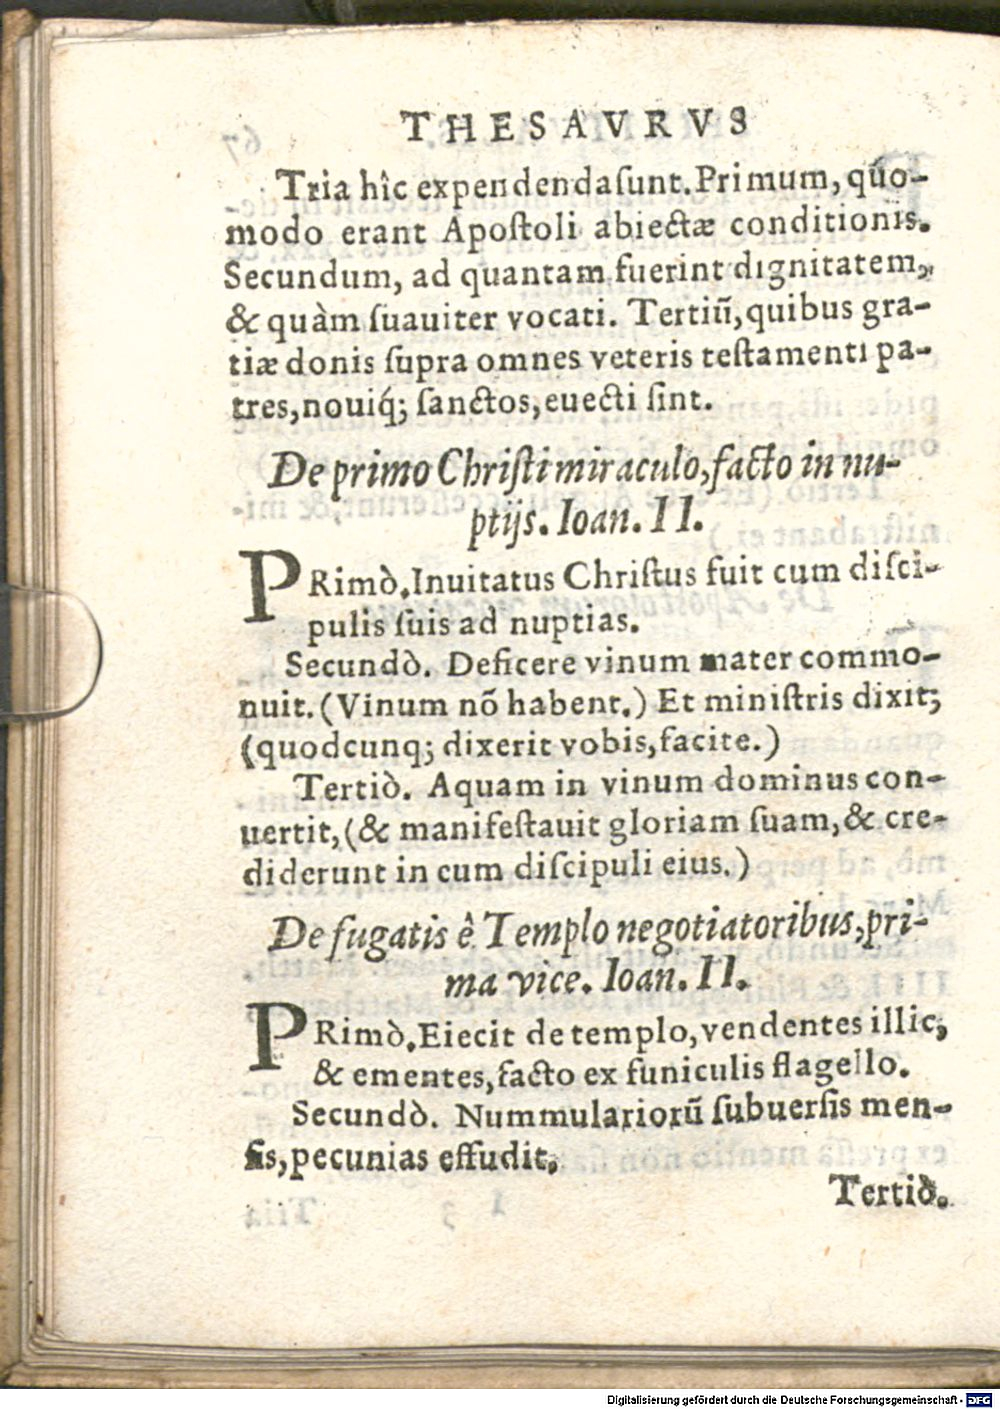 THESAVRVS
Tria hîc expendenda ſunt. Primum, quo-
modo erant Apoſtoli abiectæ conditionis.
Secundum, ad quantam fuerint dignitatem,
& quàm ſuauiter vocati. Tertiū, quibus gra-
tiæ donis ſupra omnes veteris teſtamenti pa-
tres, nouiq́; ſanctos, euecti ſint.
De primo Chriſti miraculo, facto in nu-
ptijs. Ioan. II.
PRimò. Inuitatus Chriſtus fuit cum diſci-
pulis ſuis ad nuptias.
Secundò. Deficere vinum mater commo-
nuit. (Vinum nō habent.) Et miniſtris dixit;
(quodcunq; dixerit vobis, facite.)
Tertiò. Aquam in vinum dominus con-
uertit, (& manifeſtauit gloriam ſuam, & cre-
diderunt in eum diſcipuli eius.)
De fugatis è Templo negotiatoribus, pri-
ma vice. Ioan. II.
PRimò. Eiecit de templo, vendentes illic,
& ementes, facto ex funiculis flagello.
Secundò. Nummulariorū ſubuerſis men-
ſis, pecunias effudit.
Tertiò.
Digitalisierung gefördert durch die Deutsche Forschungsgemeinschaft - DFG